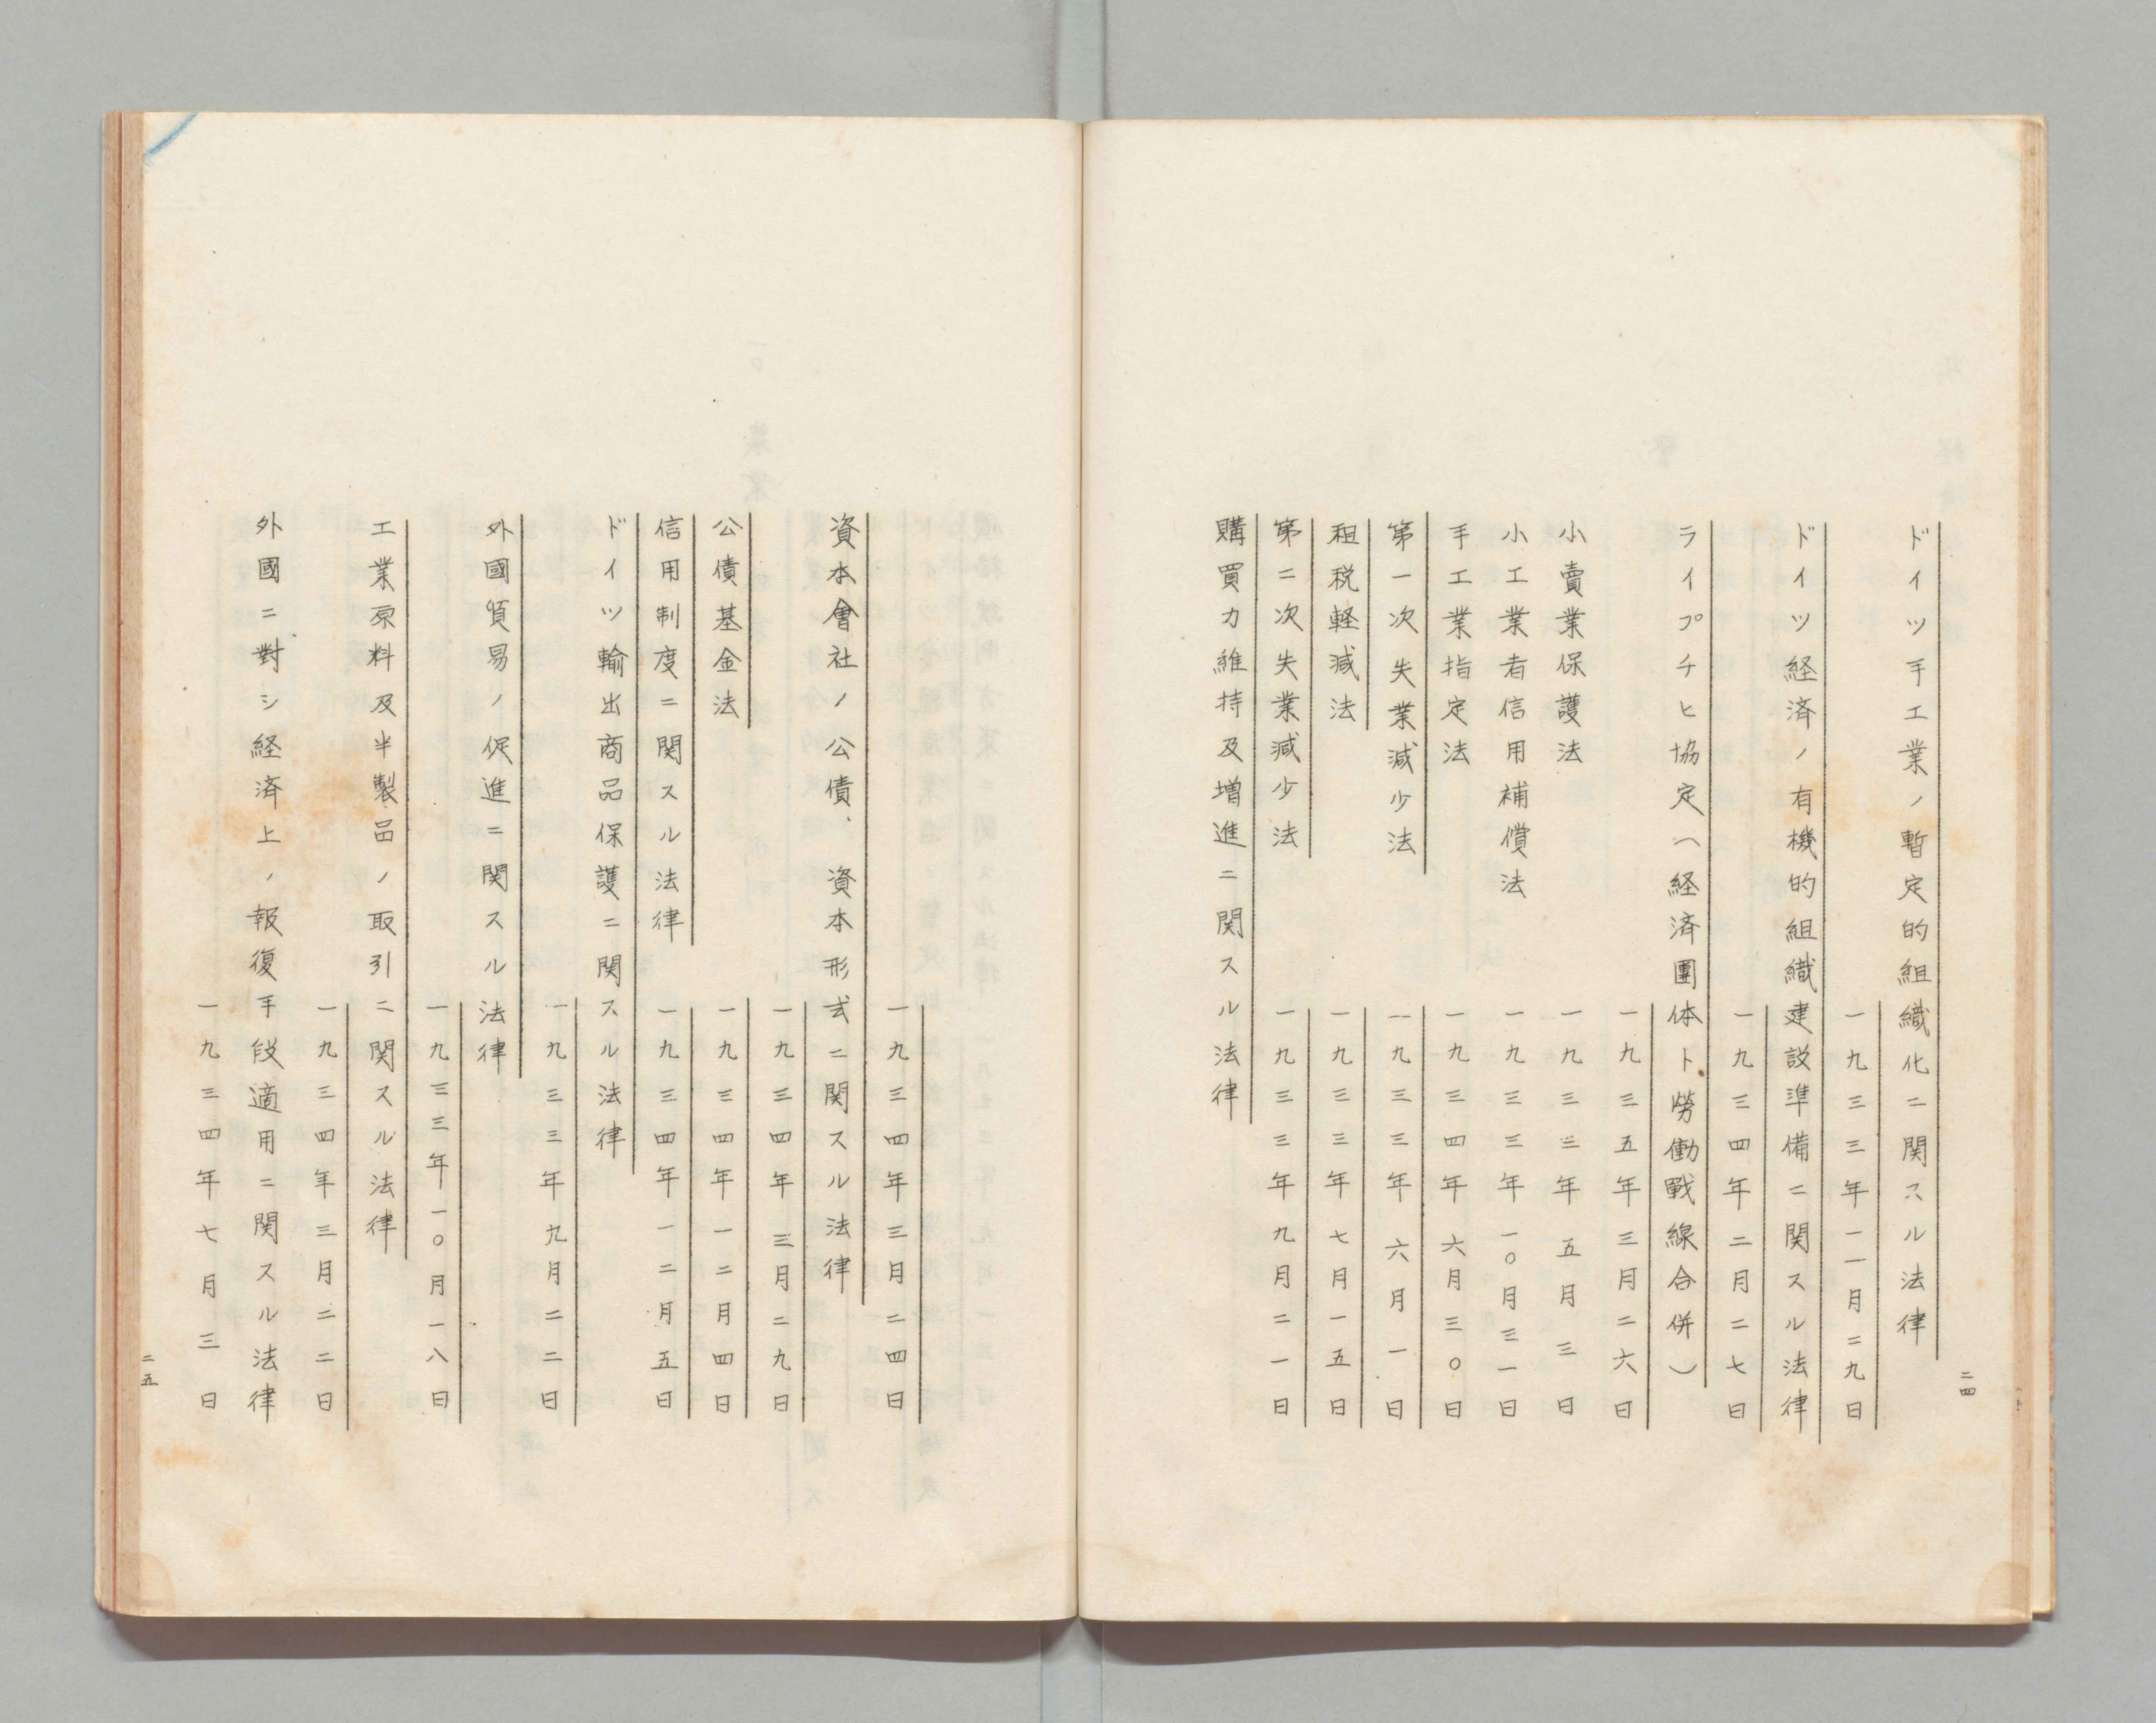 ドイツ手工業ノ暫定的組織化ニ関スル法律
一九三三年一一月二九日
ドイツ経済ノ有機的組織建設準備ニ関スル法律
一九三四年二月二七日
ライプチヒ協定(経済團体ト勞働戰線合併)
一九三五年三月二六日
小賣業保護法
一九三三年五月三日
小工業者信用補償法
一九三三年一〇月三一日
手工業指定法
一九三四年六月三〇日
第一次失業減少法
一九三三年六月一日
租税軽減法
一九三三年七月一五日
第二次失業減少法
一九三三年九月二一日
購買力維持及増進ニ関スル法律
二四
一九三四年三月二四日
資本會社ノ公債、資本形式ニ関スル法律
一九三四年三月二九日
公債基金法
一九三四年一二月四日
信用制度ニ関スル法律
一九三四年一二月五日
ドイツ輸出商品保護ニ関スル法律
一九三三年九月二二日
外國貿易ノ促進ニ関スル法律
一九三三年一〇月一八日
工業原料及半製品ノ取引ニ関スル法律
一九三四年三月二二日
外國ニ對シ経済上ノ報復手段適用ニ関スル法律
一九三四年七月三日
二五